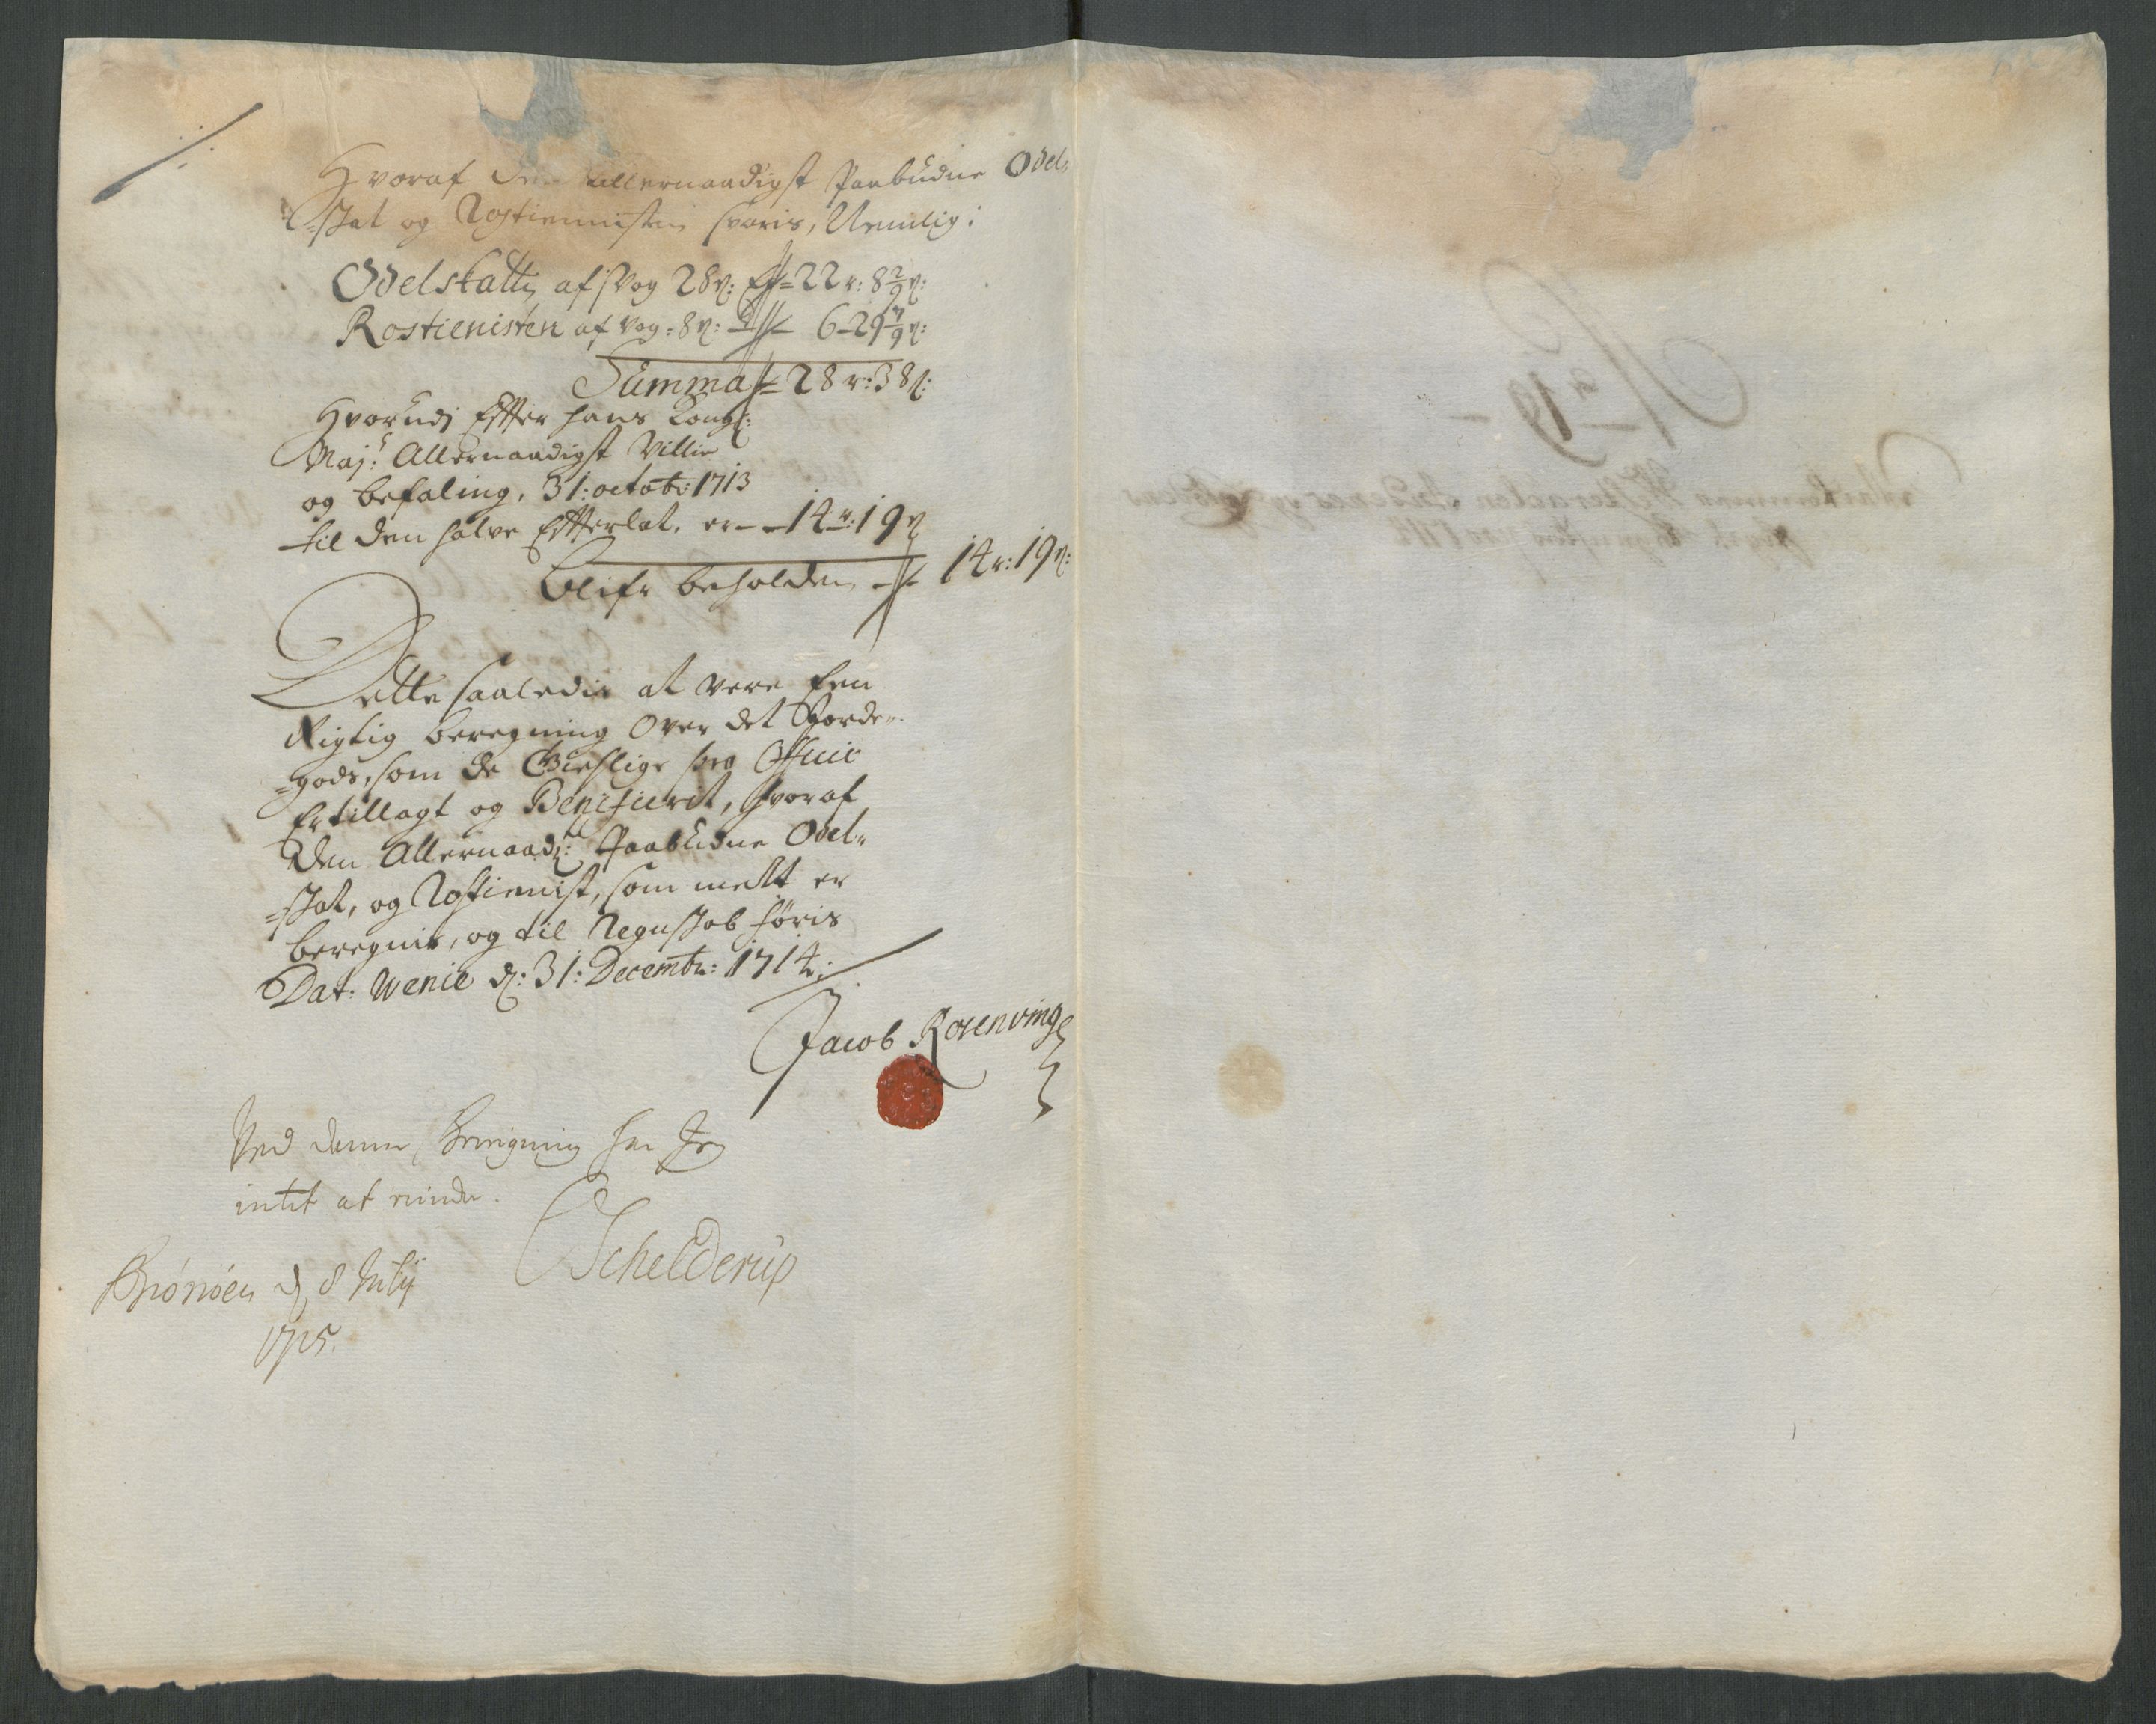 Hvoraf den Allernaadigst Paabudne Odel,
=skat og Rostienisten svaris, Nemlig:
Odelskatten af Vog 28 22 r: 8 2/9
Rostienisten af Vog: 8 6 - 29 7/9
Summa 28 r: 38
Hvorudi Effter hans Kongl:
Maj: Allernaadigst Villie
og befaling, 31: octobr: 1713
til den halve Effterlat, er 14 r: 19
Blifr beholden 14 r: 19
Dette saaledis at være Een
Rigtig beregning Over det Jorde,,
=gods, som de Gieslige pro Officio
Er tillagt og Beneficerit, hvoraf
Den Allernaad: Paabudne Odel,,
=skat, og Rostienist, som melt er
beregnis, og til Regnskab føris
Dat: Wenie d: 31: Decembr: 1714:
Jacob Rosenvinge
Ved denne Beregning har Jeg
intet at minde.
Schelderup
Brónóen d 8 July
1715.
No 19